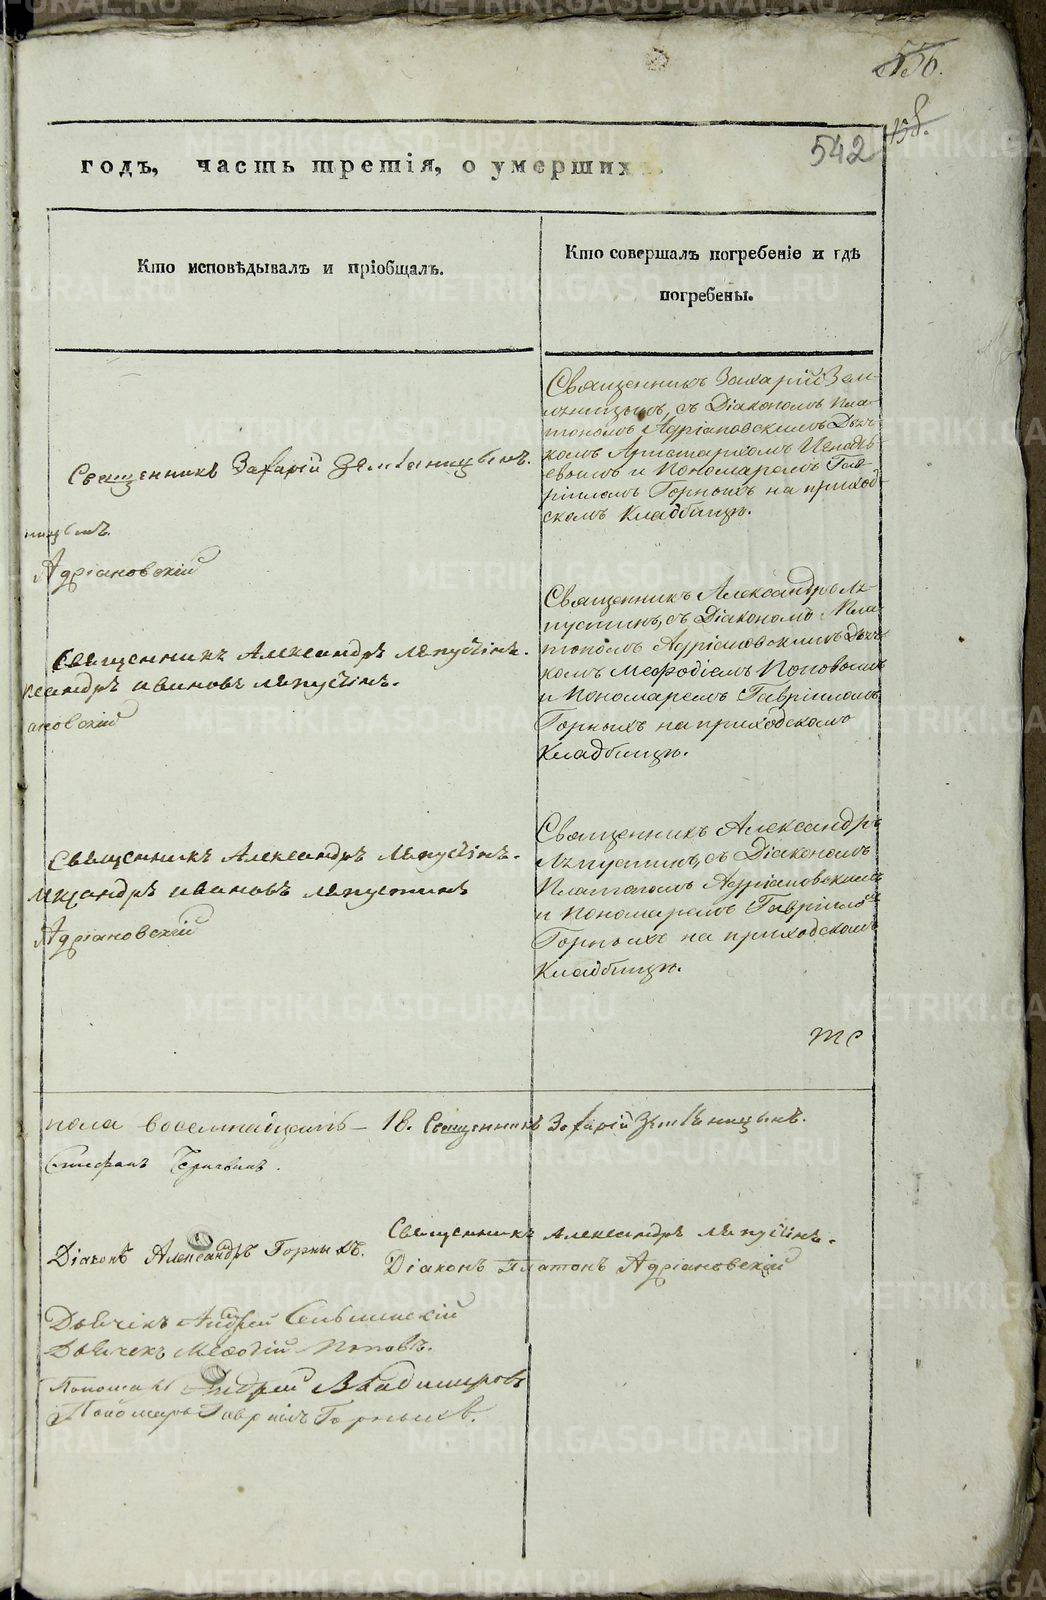 556.
158.
542
годъ, часть третія, о умершихъ.
Кто исповѣдывалъ и пріобщалъ.
Кто совершалъ погребеніе и гдѣ
погребены.
Священникъ Захарій Земляницынъ.
ницынъ.
Адріановскій
Священникъ Захарій Зем-
ляницынъ, съ Діакономъ Пла-
тономъ Адріановскимъ Дьяч-
комъ Аристархомъ
евымъ и Пономаремъ Гав-
ріиломъ Горныхъ на приход-
скомъ Кладбищѣ.
Священникъ Александръ Ляпустинъ.
ксандръ Ивановъ Ляпустинъ.
ановскій
Священникъ Александръ Ля-
пустинъ, съ Діакономъ Пла-
тономъ Адріановскимъ Дьяч-
комъ Меѳодіемъ Поповымъ
и Пономаремъ Гавріиломъ
Горныхъ на приходскомъ
Кладбищѣ.
Священникъ Александръ Ляпустинъ.
лександръ Ивановъ Ляпустинъ
Адріановскій
Священникъ Александръ
Ляпустинъ, съ Діакономъ
Платономъ Адріановскимъ
и Пономаремъ Гавріиломъ
Горныхъ на приходскомъ
Кладбищѣ.
пола восемнадцать – 18. Священникъ Захарій Земляницынъ.
Стефанъ
Священникъ Александръ Ляпустинъ.
Діаконъ Александръ Горныхъ.
Діаконъ Платонъ Адріановскій
Дьячекъ Андрей Сельминскій
Дьячекъ Меѳодій Поповъ.
Пономарь Андрей Владимировъ
Пономарь Гавріилъ Горныхъ.
METRIKI.GASO-URAL.RU